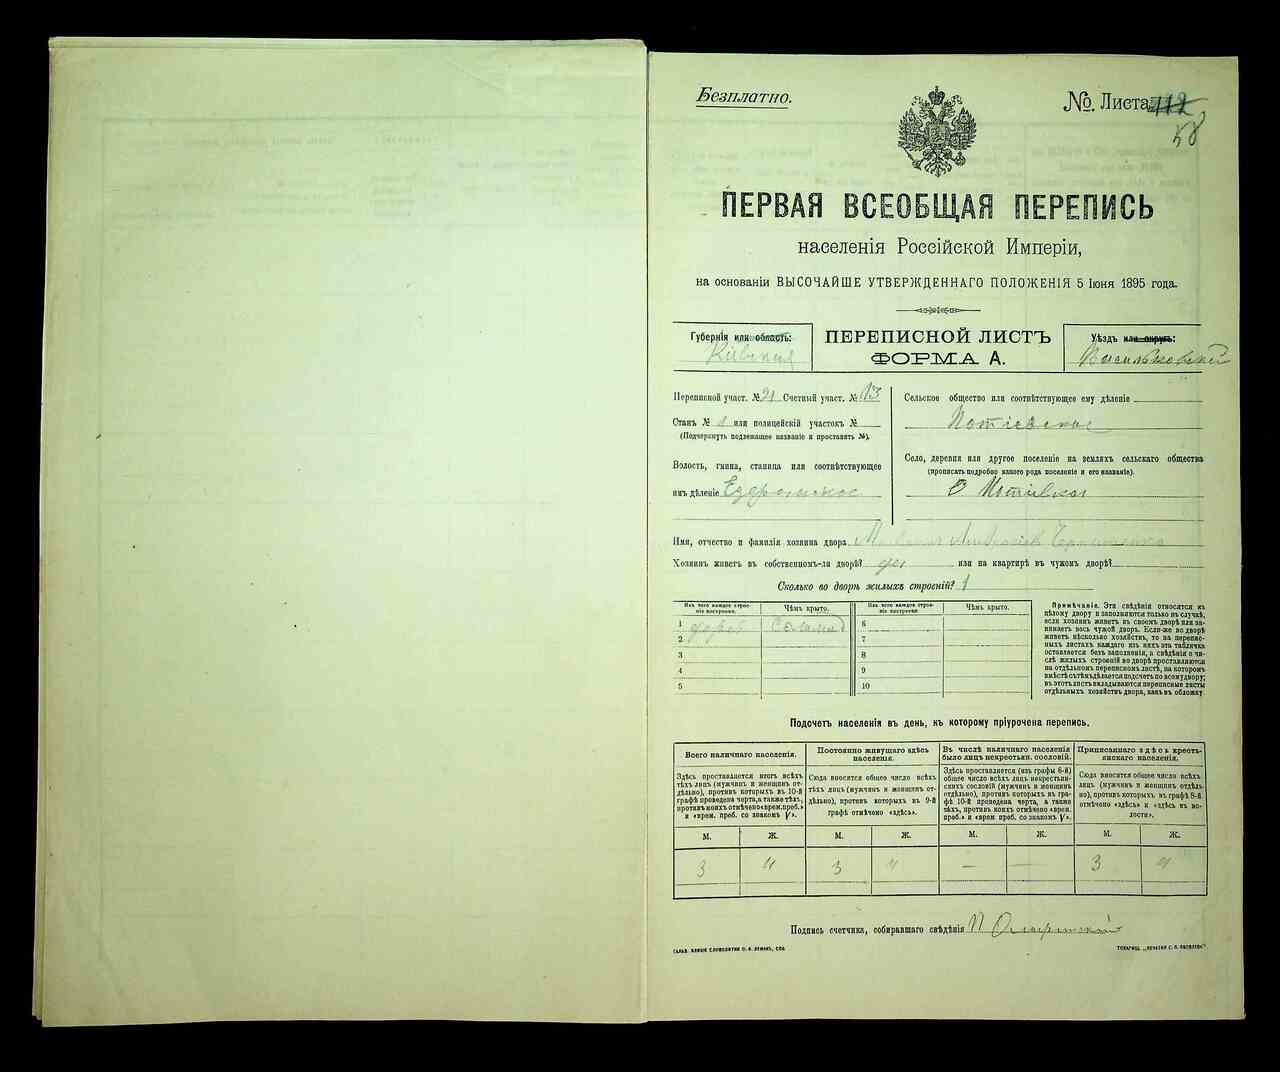 Безплатно.
№. Листа 112
58
ПЕРВАЯ ВСЕОБЩАЯ ПЕРЕПИСЬ
населенія Россійской Имперіи,
на основаніи ВЫСОЧАЙШЕ УТВЕРЖДЕННАГО ПОЛОЖЕНІЯ 5 Іюня 1895 года.
Губернія или область:
Кіевская
ПЕРЕПИСНОЙ ЛИСТЪ
ФОРМА А.
Уѣздъ или округъ:
Васильковскій
Переписной участ. № 21 Счетный участ. № 13
Станъ № 1 или полицейскій участокъ №
(Подчеркнуть подлежащее названіе и проставить №).
Волость, гмина, станица или соотвѣтствующее
имъ дѣленіе
Сельское общество или соотвѣтствующее ему дѣленіе
Потіевское
Село, деревня или другое поселеніе на земляхъ сельскаго общества
(прописать подробно какого рода поселеніе и его названіе).
Имя, отчество и фамилія хозяина двора
Хозяинъ живетъ въ собственномъ-ли дворѣ? да или на квартирѣ въ чужомъ дворѣ?
Сколько во дворѣ жилыхъ строеній? 1
Изъ чего каждое строе-
ніе построено.
Чѣмъ крыто.
1 Солома
2
3
4
5
Изъ чего каждое строе-
ніе построено.
Чѣмъ крыто.
6
7
8
9
10
Примѣчаніе. Эти свѣдѣнія относятся къ
цѣлому двору и заполняются только въ случаѣ,
если хозяинъ живетъ въ своемъ дворѣ или за-
нимаетъ весь чужой дворъ. Если-же во дворѣ
живетъ нѣсколько хозяйствъ, то на перепис-
ныхъ листахъ каждаго изъ нихъ эта табличка
оставляется безъ заполненія, а свѣдѣнія о чи-
слѣ жилыхъ строеній во дворѣ проставляются
на отдѣльномъ переписномъ листѣ, на которомъ
вмѣстѣ съ тѣмъ дѣлается подсчетъ по всему двору;
въ этотъ листъ вкладываются переписные листы
отдѣльныхъ хозяйствъ двора, какъ въ обложку.
Подсчетъ населенія въ день, къ которому пріурочена перепись.
Всего наличнаго населенія.
Здѣсь проставляется итогъ всѣхъ
тѣхъ лицъ (мужчинъ и женщинъ от-
дѣльно), противъ которыхъ въ 10-й
графѣ проведена черта, а также тѣхъ,
противъ коихъ отмѣчено «врем. преб.»
и «врем. преб. со знакомъ V».
Постоянно живущаго здѣсь
населенія.
Сюда вносится общее число всѣхъ
тѣхъ лицъ (мужчинъ и женщинъ от-
дѣльно), противъ которыхъ въ 9-й
графѣ отмѣчено «здѣсь».
Въ числѣ наличнаго населенія
было лицъ некрестьян. сословій.
Здѣсь проставляется (изъ графы 6-й)
общее число всѣхъ лицъ некрестьян-
скихъ сословій (мужчинъ и женщинъ
отдѣльно), противъ которыхъ въ гра-
фѣ 10-й проведена черта, а также
тѣхъ, противъ коихъ отмѣчено «врем.
преб.» и «врем. преб. со знакомъ V».
Приписаннаго здѣсь кресть-
янскаго населенія.
Сюда вносится общее число всѣхъ
лицъ (мужчинъ и женщинъ отдѣль-
но), противъ которыхъ въ графѣ 8-й
отмѣчено «здѣсь» и «здѣсь въ во-
лости».
М. Ж. М. Ж. М. Ж. М. Ж.
3 4 3 4 — — 3 4
Подпись счетчика, собиравшаго свѣдѣнія